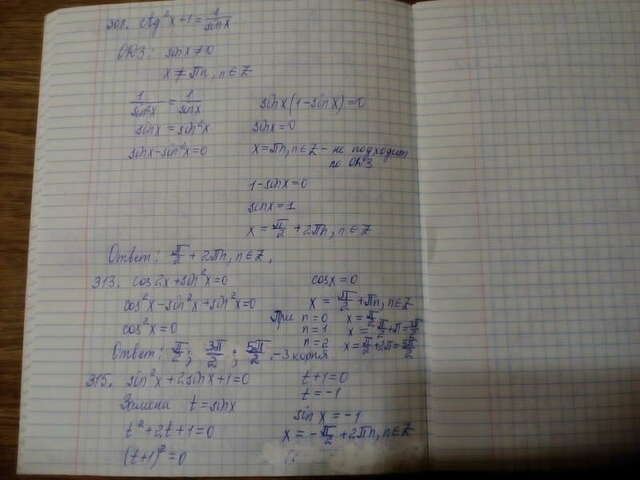 301. ctg²x+1=1/sinx
ОДЗ: sinx≠0
x≠πn, n∈Z
1/sin²x = 1/sinx
sinx=sin²x
sinx-sin²x=0
sinx(1-sinx)=0
sinx=0
x=πn, n∈Z - не подходит
по ОДЗ
1-sinx=0
sinx=1
x=π/2+2πn, n∈Z
Ответ: π/2+2πn, n∈Z.
313. cos2x+sin²x=0
cos²x-sin²x+sin²x=0
cos²x=0
cosx=0
x=π/2+πn, n∈Z
При n=0 x=π/2
n=1 x=π/2+π=3π/2
n=2 x=π/2+2π=5π/2
Ответ: π/2; 3π/2; 5π/2. -3 корня
315. sin²x+2sinx+1=0
Замена t=sinx
t²+2t+1=0
(t+1)²=0
t+1=0
t=-1
sinx=-1
x=-π/2+2πn, n∈Z